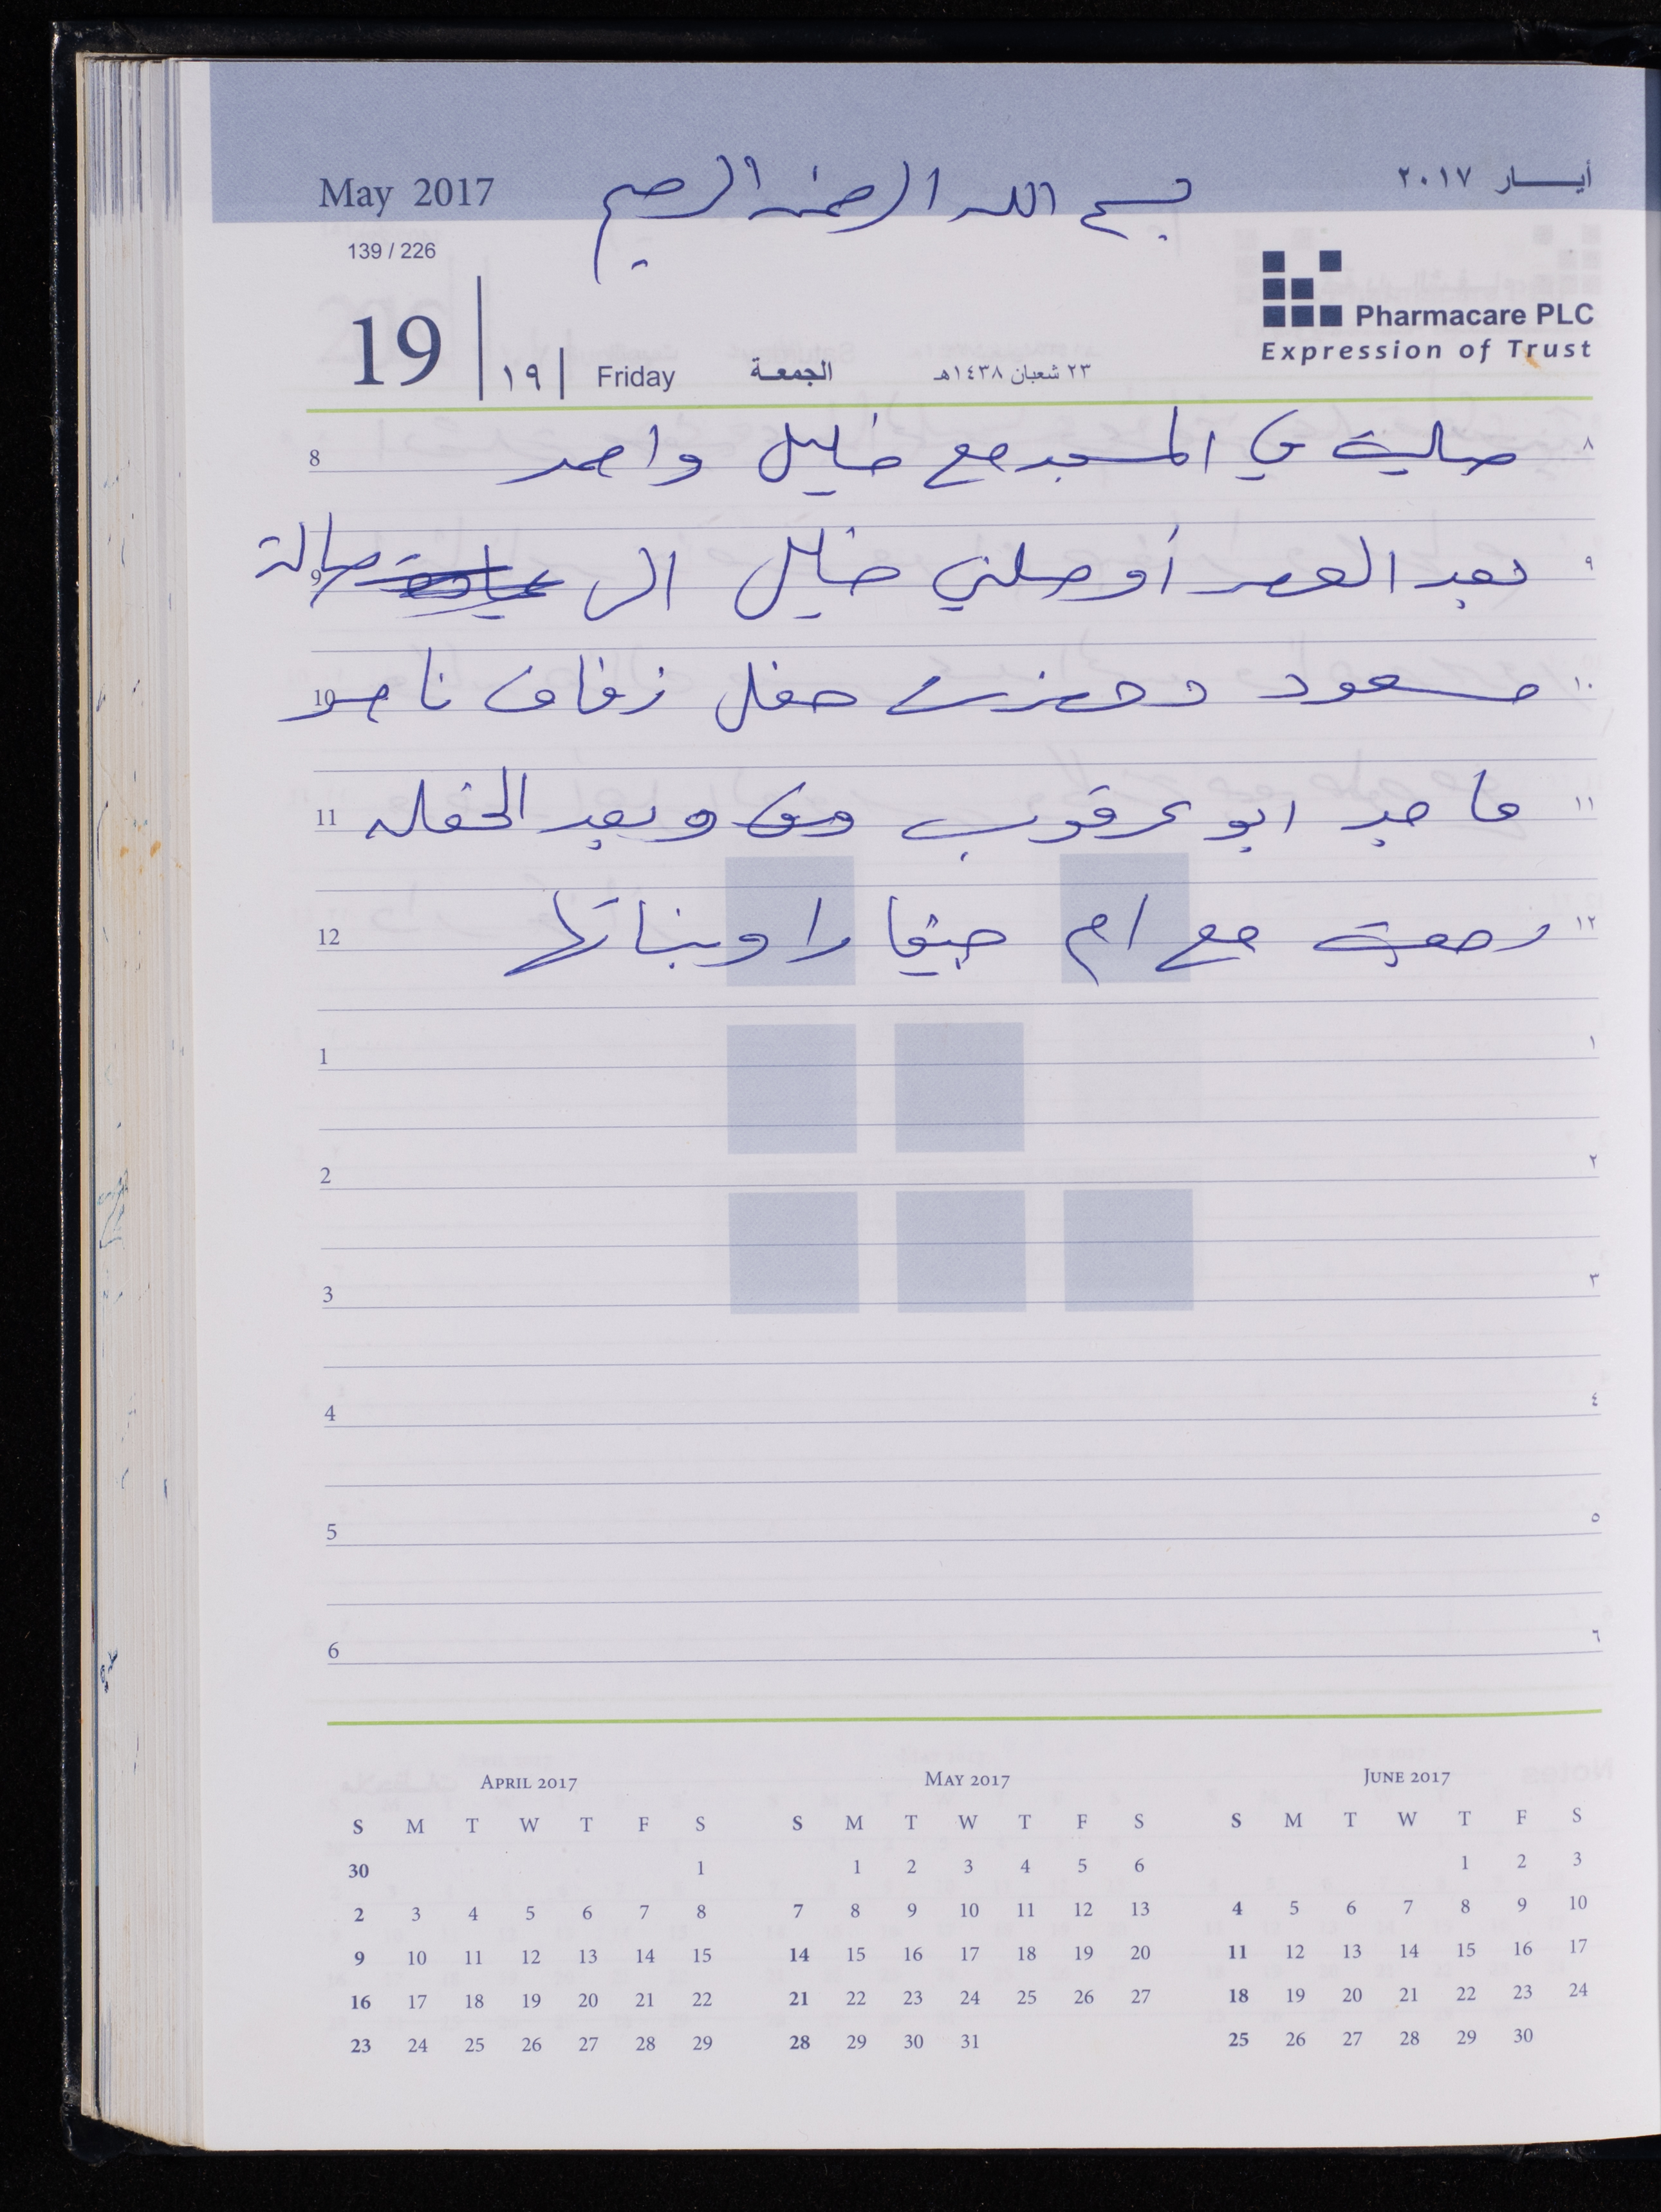 May 2017
بسم الله الرحمن الرحيم
أيـــار ٢٠١٧
139 / 226
Pharmacare PLC
Expression of Trust
19 ١٩ Friday الجمعـة ٢٣ شعبان ١٤٣٨هـ
8 صليت في المسجد مع خليل واحمد ٨
9 بعد العصر أوصلني خليل الى صالة ٩
10 مسعود وحضرت حفل زفاف ناصر ١٠
11 ماجد ابو عرقوب وبعد الحفله ١١
12 رجعت مع ام جيفارا وبناتها ١٢
1 ١
2 ٢
3 ٣
4 ٤
5 ٥
6 ٦
April 2017
S M T W T F S
30 1
2 3 4 5 6 7 8
9 10 11 12 13 14 15
16 17 18 19 20 21 22
23 24 25 26 27 28 29
May 2017
S M T W T F S
1 2 3 4 5 6
7 8 9 10 11 12 13
14 15 16 17 18 19 20
21 22 23 24 25 26 27
28 29 30 31
June 2017
S M T W T F S
1 2 3
4 5 6 7 8 9 10
11 12 13 14 15 16 17
18 19 20 21 22 23 24
25 26 27 28 29 30